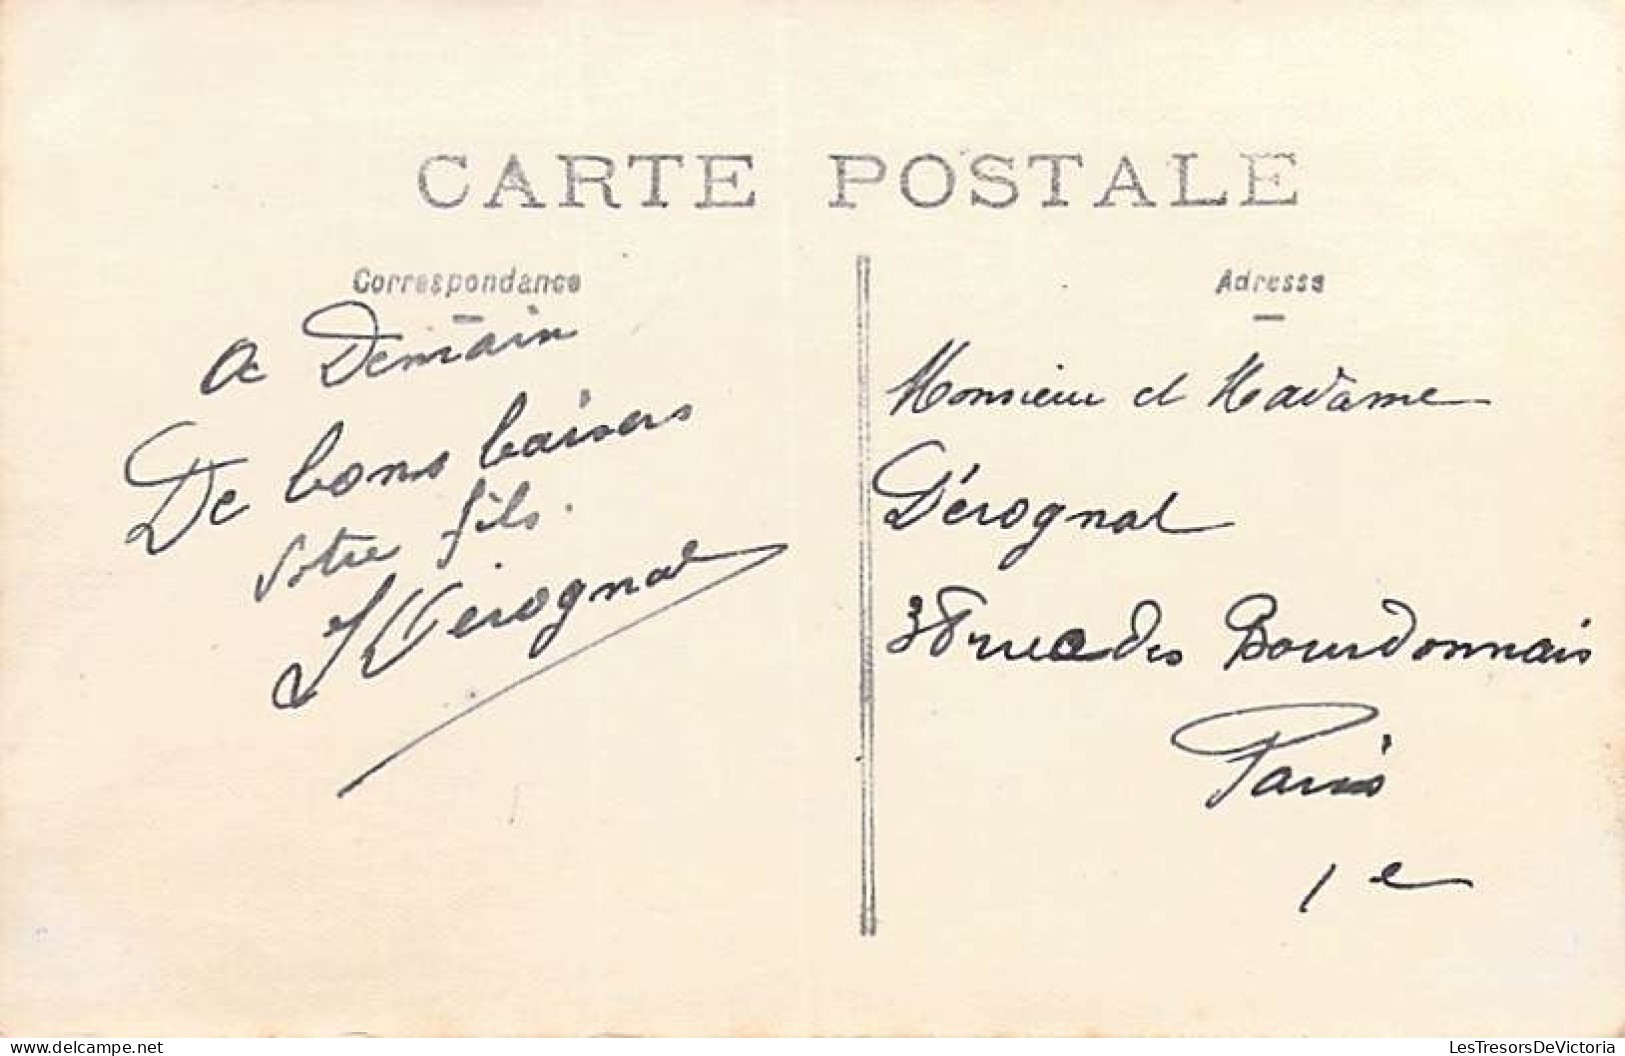 CARTE POSTALE
Correspondance
A Demain
De bons baisers
Votre fils.
Dérognat
Adresse
Monsieur et Madame
Dérognat
38 rue des Bourdonnais
Paris
1e
LesTresorsDeVictoria